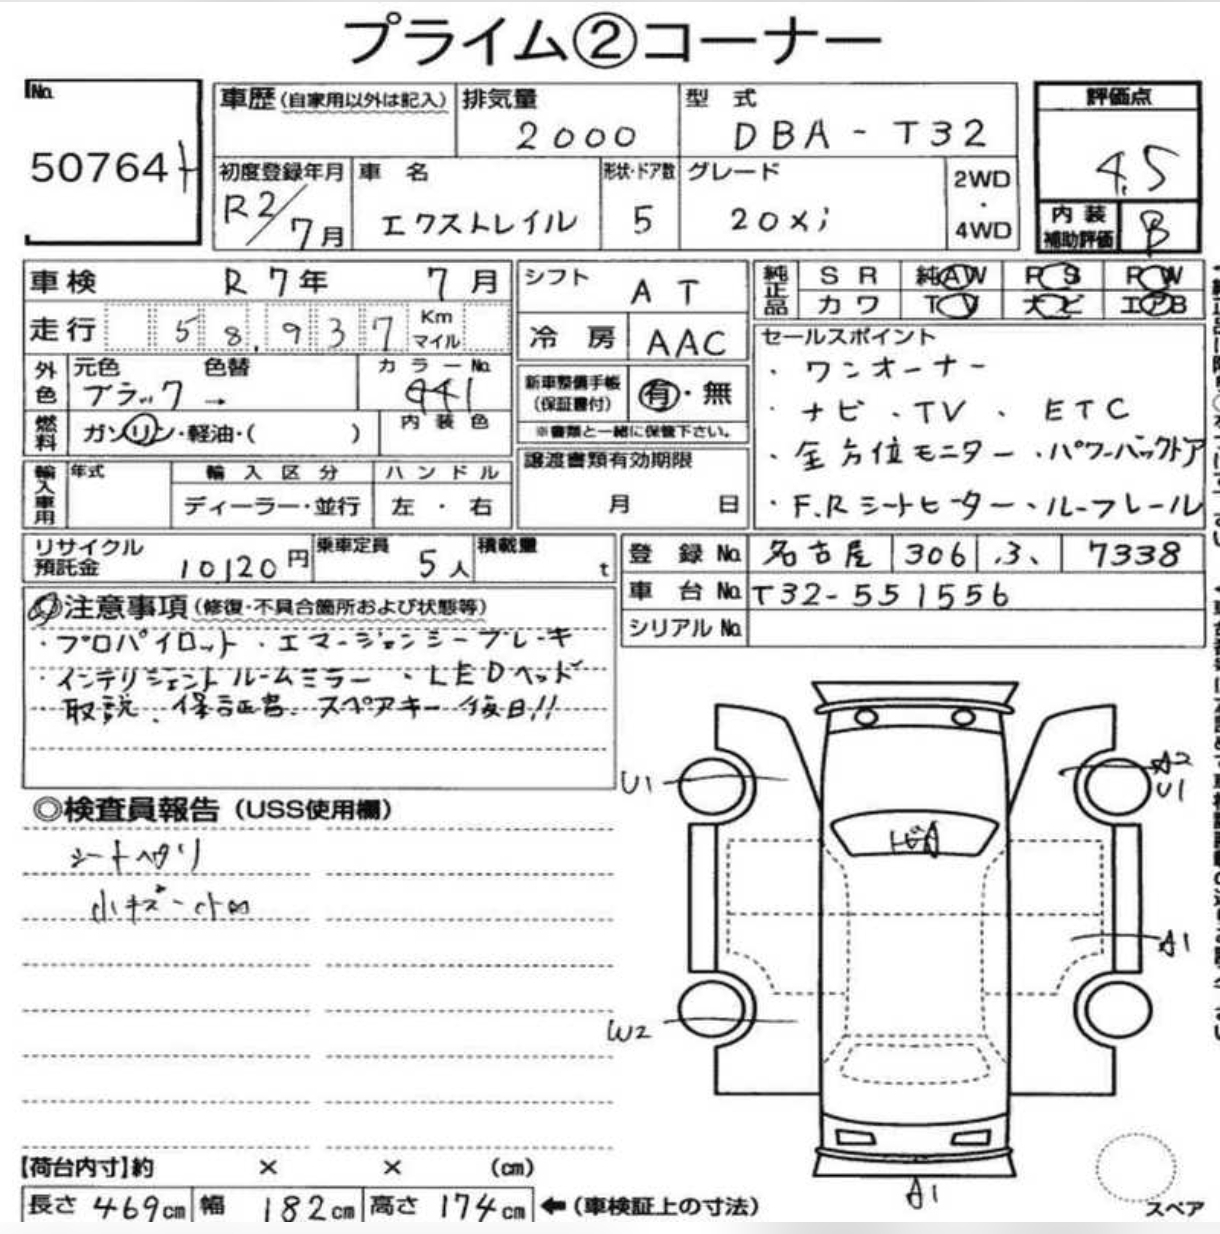 プライム②コーナー
No.
50764
車歴(自家用以外は記入)
排気量
2000
型 式
DBA - T32
評価点
4.5
初度登録年月
R2/7月
車 名
エクストレイル
形状・ドア数
5
グレード
20xi
2WD
・
4WD
内 装
補助評価
B
車検 R 7年 7月
走行 58,937 Km マイル
シフト AT
冷 房 AAC
純正品
S R 純AW P S P W
カワ T V ナビ エアB
外色
元色 色替
ブラック →
カラーNo.
G41
内装色
燃料
ガソリン・軽油・( )
新車整備手帳
(保証書付)
有・無
※書類と一緒に保管下さい。
セールスポイント
・ワンオーナー
・ナビ・TV・ETC
・全方位モニター・パワーバックドア
・F.Rシートヒーター・ルーフレール
輸入車用
年式
輸入区分
ディーラー・並行
ハンドル
左・右
譲渡書類有効期限
月 日
リサイクル
預託金 10120円
乗車定員
5人
積載量
t
登 録 No. 名古屋 306 3 7338
車 台 No. T32-551556
シリアル No.
◎注意事項(修復・不具合箇所および状態等)
・プロパイロット・エマージェンシーブレーキ
・インテリジェントルームミラー・LEDヘッド
取説、保証書、スペアキー後日!!
◎検査員報告(USS使用欄)
シートヘタリ
小キズ・小凹
U1
A2
U1
トビA
A1
W2
A1
【荷台内寸】約 × × (cm)
長さ 469cm 幅 182cm 高さ 174cm ←(車検証上の寸法)
スペア